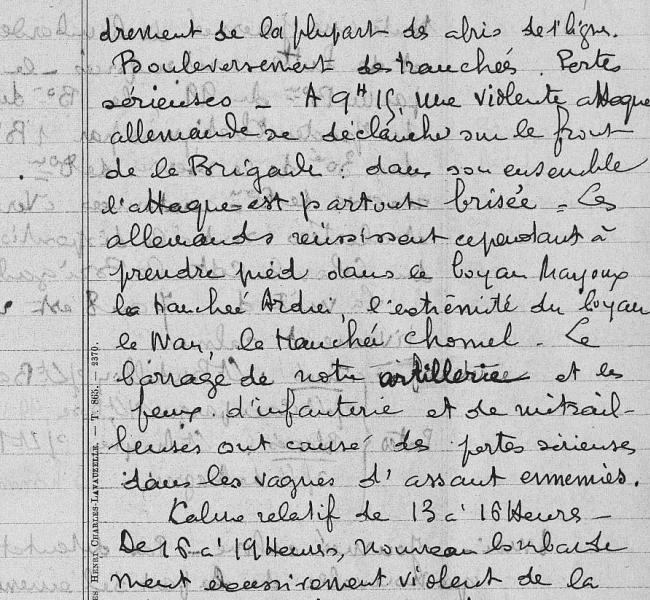 drement de la plupart des abris de 1e ligne.
Bouleversement des tranchées. Pertes
sérieuses - A 9H15, une violente attaque
allemande se déclanche sur le front
de la Brigade : dans son ensemble
l'attaque est partout brisée - Les
allemands réussissent cependant à
prendre pied dans le boyau Mayoux
la tranchée Ardrei, l'extrémité du boyau
le Nan, la tranchée Chomel - Le
barrage de notre artillerie et les
feux d'infanterie et de mitrail-
leuses ont causé des pertes sérieuses
dans les vagues d'assaut ennemies.
Calme relatif de 13 à 16 Heures -
De 16 à 19 Heures, nouveau bombarde
ment excessivement violent de la
HENRY CHARLES-LAVAUZELLE. — T. 865. — 2370.